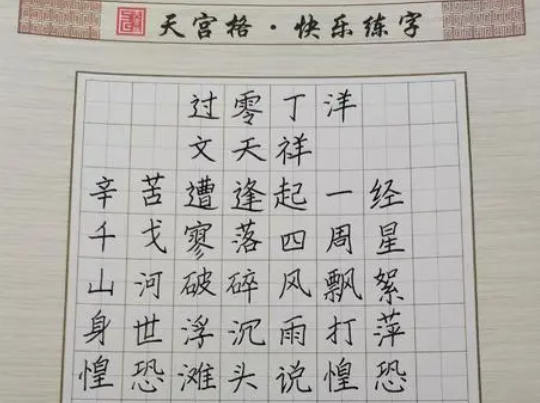 天宫格·快乐练字
过零丁洋
文天祥
辛苦遭逢起一经
千戈寥落四周星
山河破碎风飘絮
身世浮沉雨打萍
惶恐滩头说惶恐